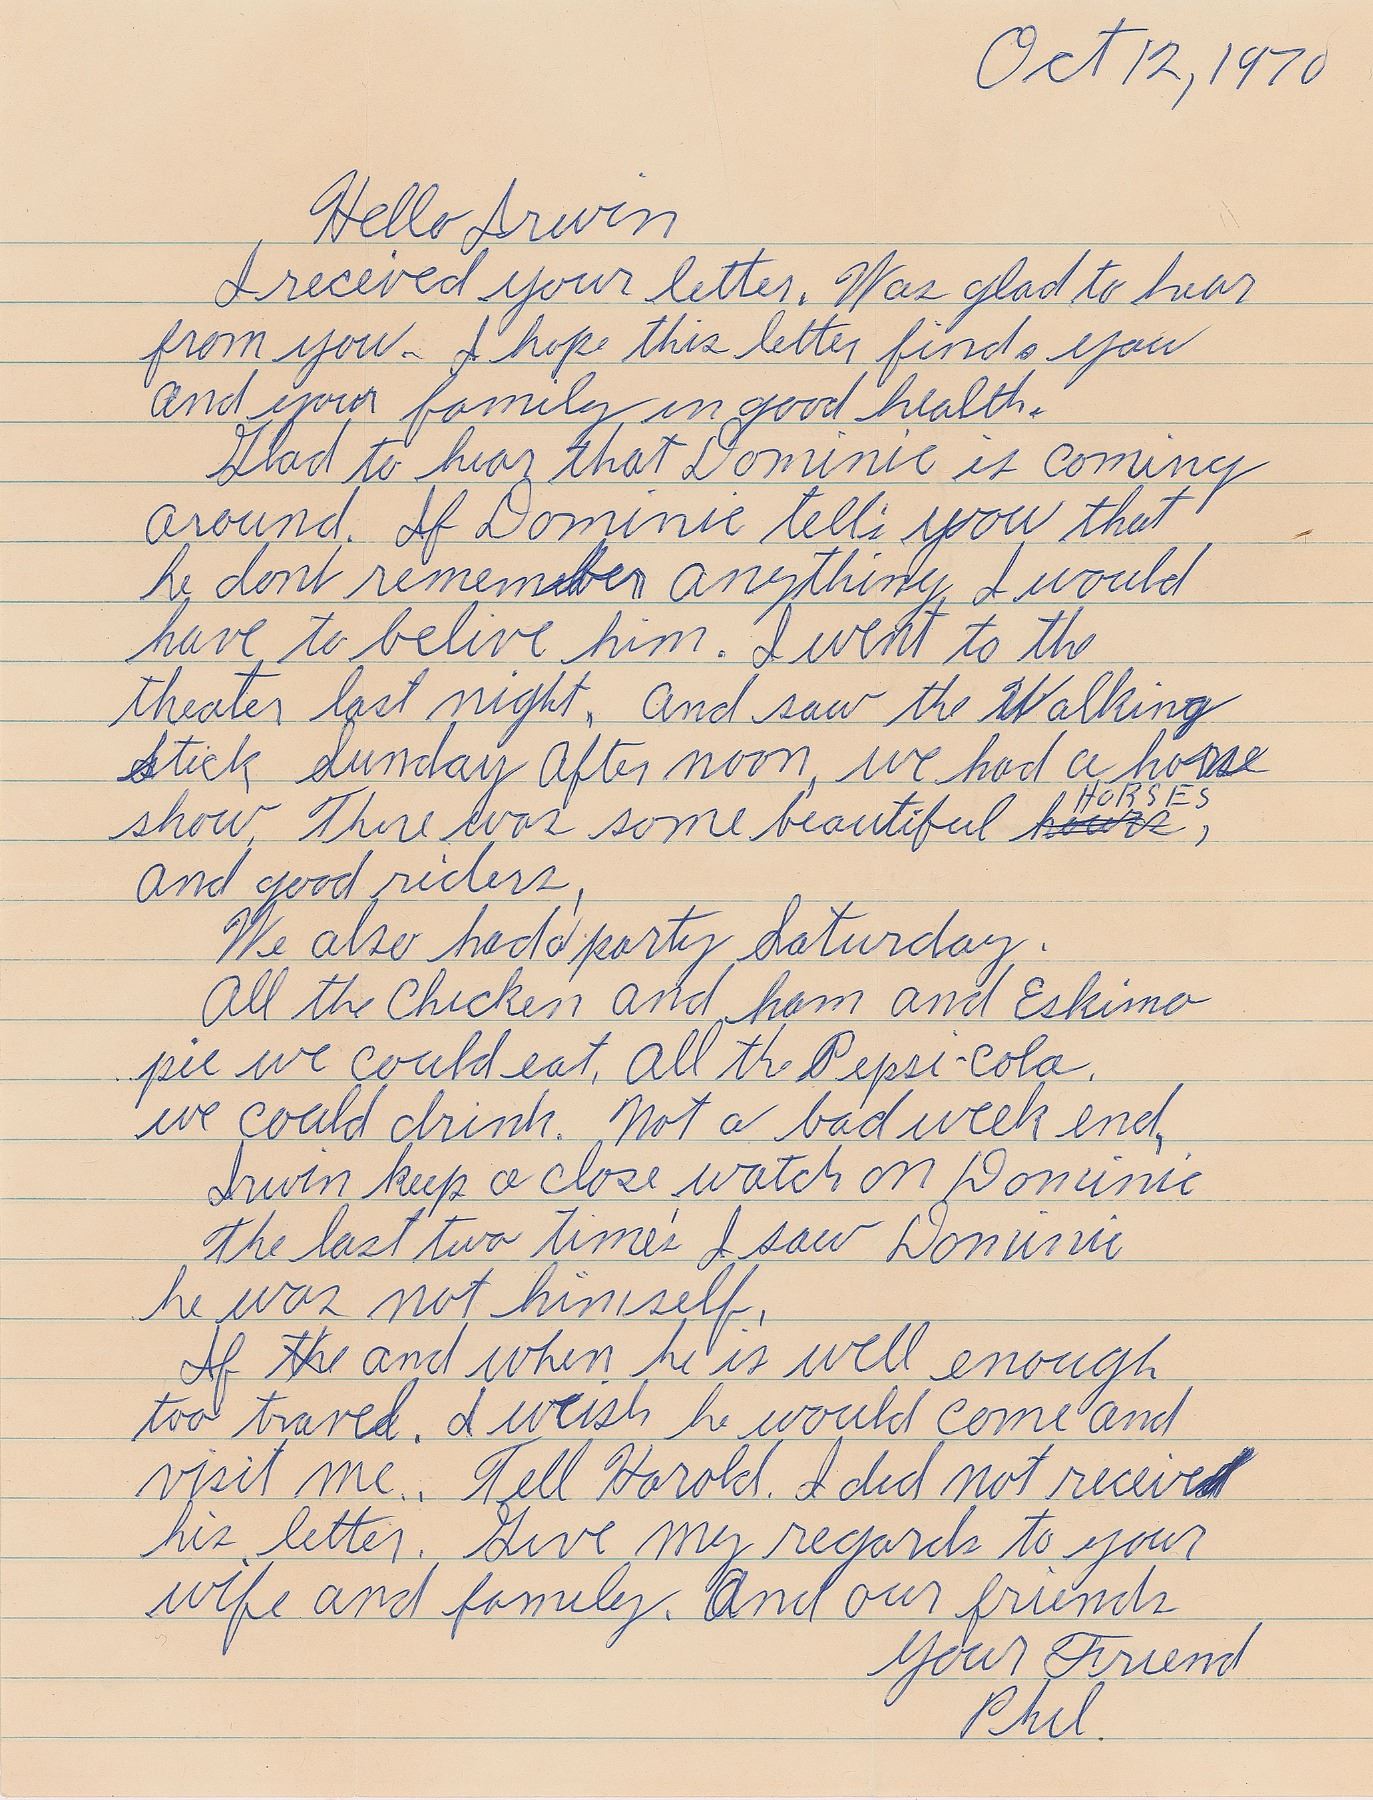 Oct 12, 1970
Hello Irwin
I received your letter. Was glad to hear
from you. I hope this letter finds you
and your family in good health.
Glad to hear that Dominic is coming
around. If Dominic tells you that
he dont remember anything I would
have to belive him. I went to the
theater last night, and saw the Walking
Stick Sunday after noon, we had a horse
HORSES
show, There was some beautiful hours,
and good riders,
We also had a party Saturday.
All the Chicken and ham and Eskimo
pie we could eat, all the Pepsi-Cola.
we could drink. Not a bad week end,
Irwin keep a close watch on Dominic
The last two times I saw Dominic
he was not himself,
If the and when he is well enough
too travel. I weish he would come and
visit me.. Tell Harold. I did not received
his letter. Give my regards to your
wife and family. And our friends
Your Friend
Phil.